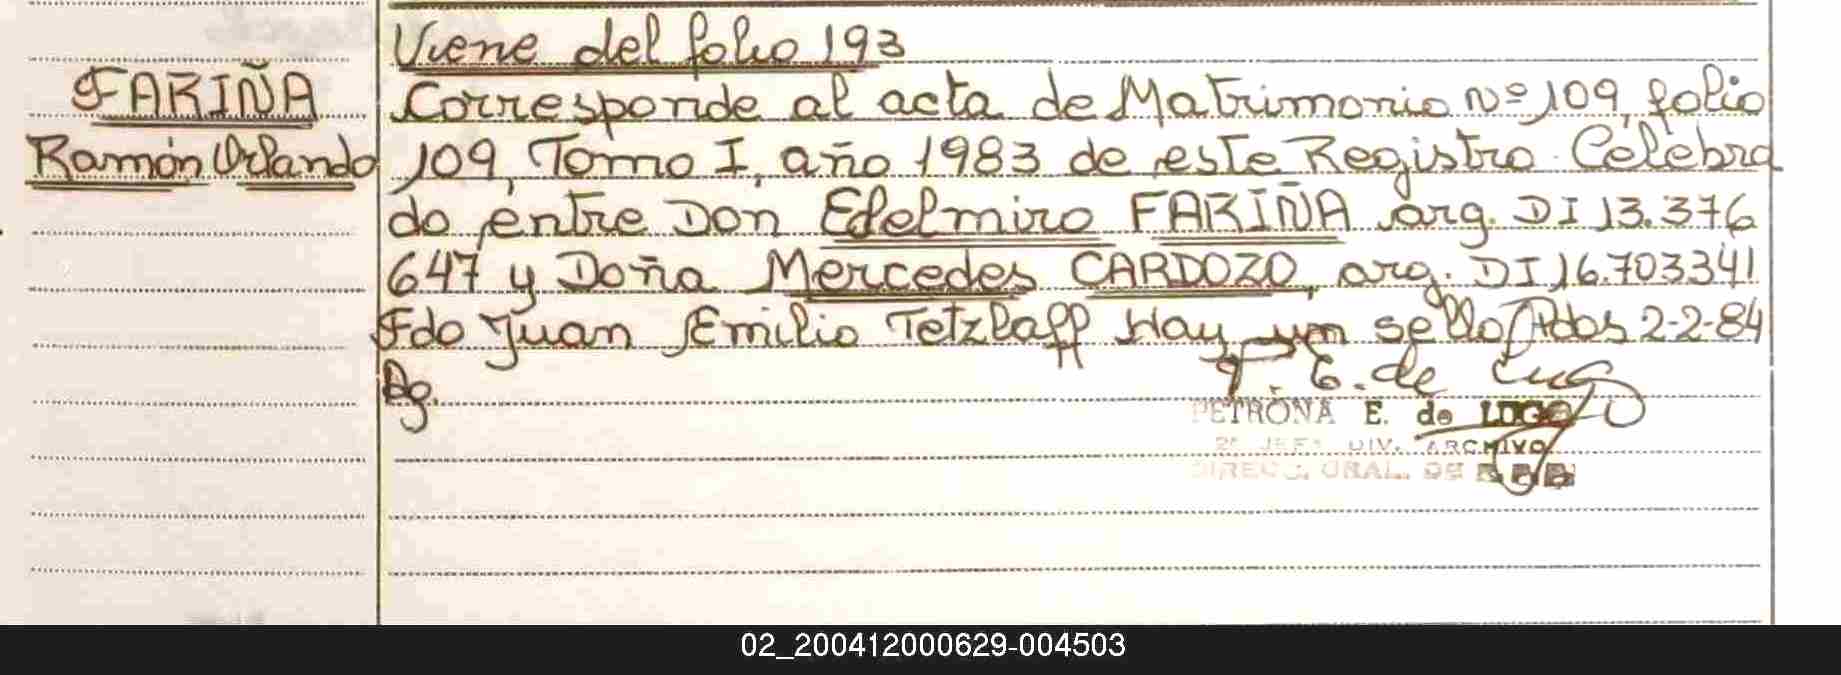 Viene del folio 193
FARIÑA
Corresponde al acta de Matrimonio Nº 109, folio
Ramón Orlando
109, Tomo I, año 1983 de este Registro. Celebra
do entre Don Edelmiro FARIÑA arg. DI 13.376
647 y Doña Mercedes CARDOZO, arg. DI 16.703341
Fdo Juan Emilio Tetzlaff Hay un sello Pdos 2-2-84
Ag.
P. E. de Lugo
PETRONA E. de LUGO
2º JEFE DIV. ARCHIVO
DIREC. GRAL. DE
02_200412000629-004503